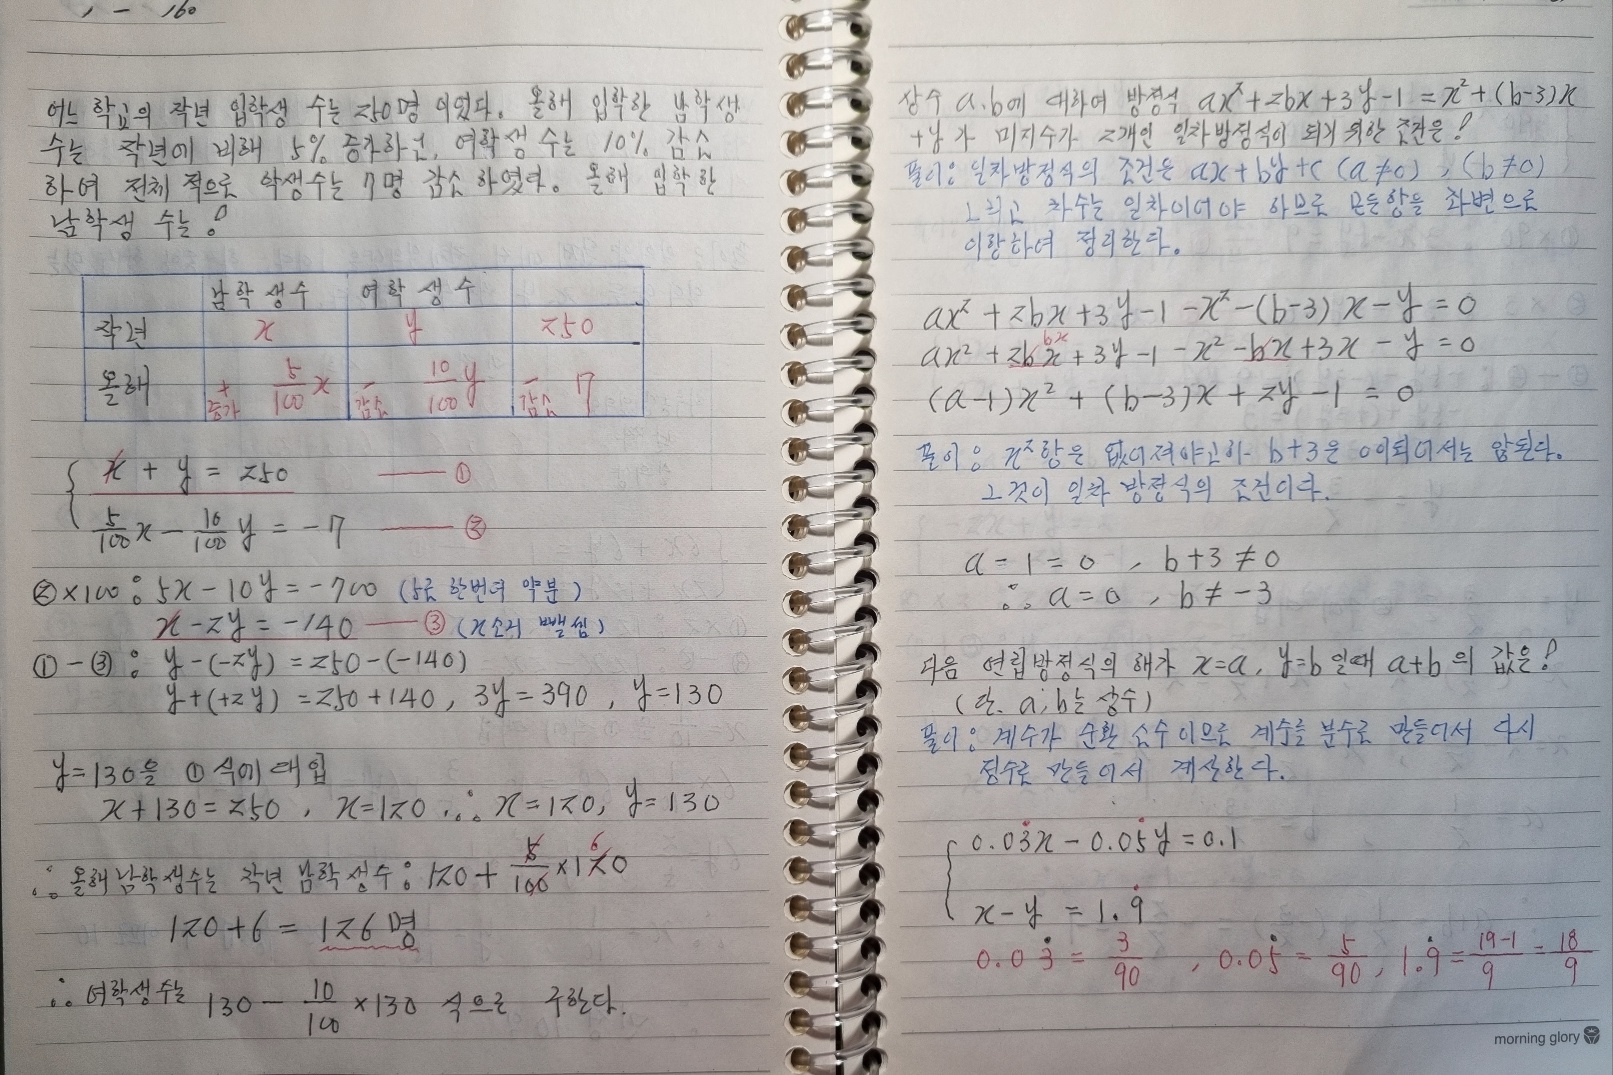 어느 학교의 작년 입학생 수는 250명 이였다. 올해 입학한 남학생
수는 작년에 비해 5% 증가하고, 여학생 수는 10% 감소
하여 전체 적으로 학생수는 7명 감소 하였다. 올해 입학한
남학생 수는?
남학생수 여학생수
작년 x y 250
올해 + 증가 5/100 x - 감소 10/100 y - 감소 7
x + y = 250 ①
5/100 x - 10/100 y = -7 ②
②×100: 5x - 10y = -700 (5로 한번더 약분)
x - 2y = -140 ③ (x소거 뺄셈)
① - ③: y - (-2y) = 250 - (-140)
y + (+2y) = 250 + 140, 3y = 390, y = 130
y = 130을 ① 식에 대입
x + 130 = 250, x = 120 ∴ x = 120, y = 130
∴ 올해 남학생수는 작년 남학생수: 120 + 5/100 × 120 6
120 + 6 = 126명
∴ 여학생수는 130 - 10/100 × 130 식으로 구한다.
상수 a.b에 대하여 방정식 ax² + 2bx + 3y - 1 = x² + (b-3)x
+y가 미지수가 2개인 일차방정식이 되기 위한 조건은?
풀이: 일차방정식의 조건은 ax + by + c (a≠0), (b≠0)
그리고 차수는 일차이어야 하므로 모든항을 좌변으로
이항하여 정리한다.
ax² + 2bx + 3y - 1 - x² - (b-3)x - y = 0
bx
ax² + 2bx + 3y - 1 - x² - bx + 3x - y = 0
(a-1)x² + (b-3)x + 2y - 1 = 0
풀이: x²항은 없어져야 b+3은 0이되어서는 않된다.
그것이 일차 방정식의 조건이다.
a = 1 = 0, b + 3 ≠ 0
∴ a = 0, b ≠ -3
다음 연립방정식의 해가 x=a, y=b 일때 a+b의 값은?
(단. a, b는 상수)
풀이: 계수가 순환 소수 이므로 계수를 분수로 만들어서 다시
정수로 만들어서 계산한다.
0.03̇x - 0.05̇y = 0.1
x - y = 1.9̇
0.03̇ = 3/90, 0.05̇ = 5/90, 1.9̇ = 19-1/9 = 18/9
morning glory